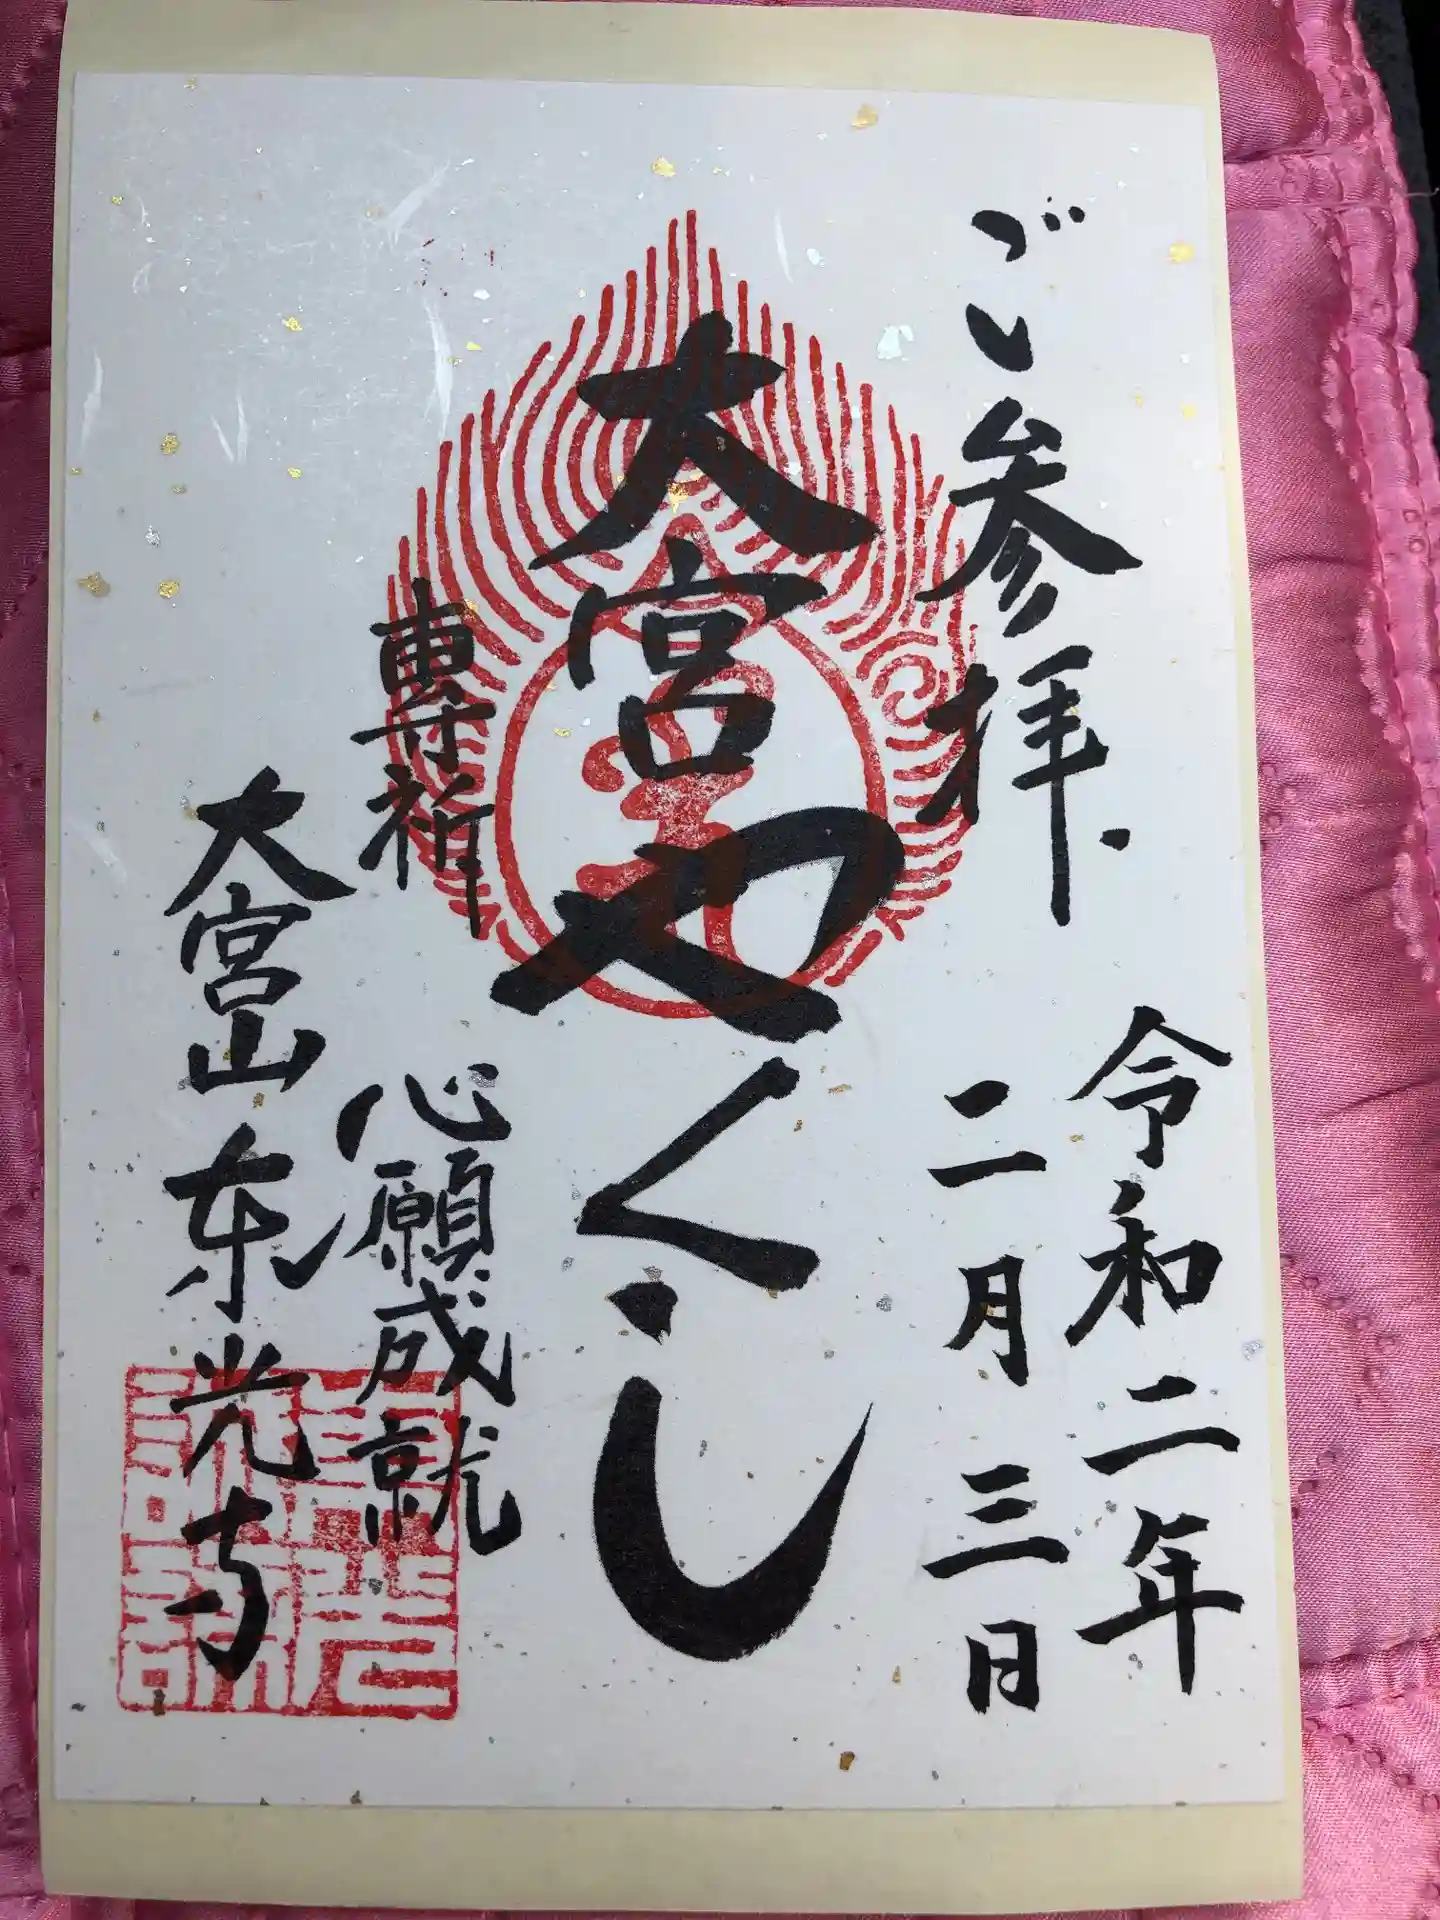 ご参拝
令和二年
二月三日
大宮やくし
専祈
心願成就
大宮山东光寺